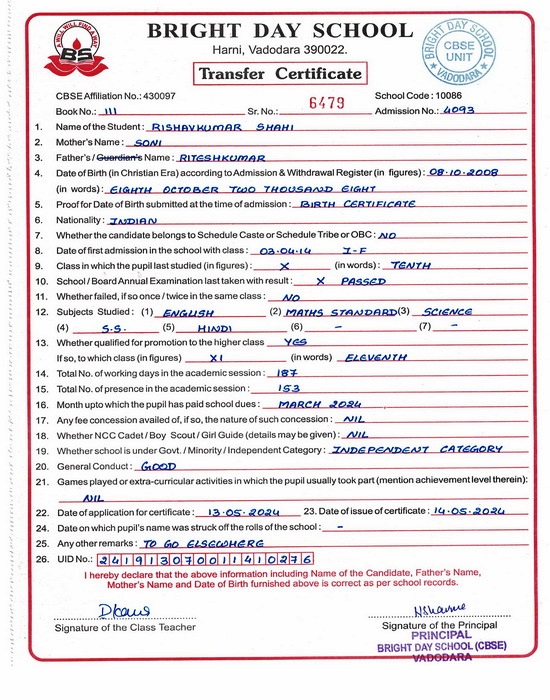 A WILL WILL FIND A WAY
BS
BRIGHT DAY SCHOOL
Harni, Vadodara 390022.
Transfer Certificate
BRIGHT DAY SCHOOL
CBSE
UNIT
★ VADODARA ★
CBSE Affiliation No.: 430097 School Code : 10086
Book No.: III Sr. No.: 6479 Admission No.: 4093
1. Name of the Student : RISHAVKUMAR SHAHI
2. Mother's Name : SONI
3. Father's / Guardian's Name : RITESHKUMAR
4. Date of Birth (in Christian Era) according to Admission & Withdrawal Register (in figures) : 08-10-2008
(in words) : EIGHTH OCTOBER TWO THOUSAND EIGHT
5. Proof for Date of Birth submitted at the time of admission : BIRTH CERTIFICATE
6. Nationality : INDIAN
7. Whether the candidate belongs to Schedule Caste or Schedule Tribe or OBC : NO
8. Date of first admission in the school with class : 03-04-14 I-F
9. Class in which the pupil last studied (in figures) : X (in words) : TENTH
10. School / Board Annual Examination last taken with result : X PASSED
11. Whether failed, if so once / twice in the same class : NO
12. Subjects Studied : (1) ENGLISH (2) MATHS STANDARD (3) SCIENCE
(4) S.S. (5) HINDI (6) - (7) -
13. Whether qualified for promotion to the higher class YES
If so, to which class (in figures) XI (in words) ELEVENTH
14. Total No. of working days in the academic session : 187
15. Total No. of presence in the academic session : 153
16. Month upto which the pupil has paid school dues : MARCH 2024
17. Any fee concession availed of, if so, the nature of such concession : NIL
18. Whether NCC Cadet / Boy Scout / Girl Guide (details may be given) : NIL
19. Whether school is under Govt. / Minority / Independent Category : INDEPENDENT CATEGORY
20. General Conduct : GOOD
21. Games played or extra-curricular activities in which the pupil usually took part (mention achievement level therein) :
NIL
22. Date of application for certificate : 13-05-2024 23. Date of issue of certificate : 14-05-2024
24. Date on which pupil's name was struck off the rolls of the school : -
25. Any other remarks : TO GO ELSEWHERE
26. UID No.: 241913070011410276
I hereby declare that the above information including Name of the Candidate, Father's Name,
Mother's Name and Date of Birth furnished above is correct as per school records.
Signature of the Class Teacher
Signature of the Principal
PRINCIPAL
BRIGHT DAY SCHOOL (CBSE)
VADODARA